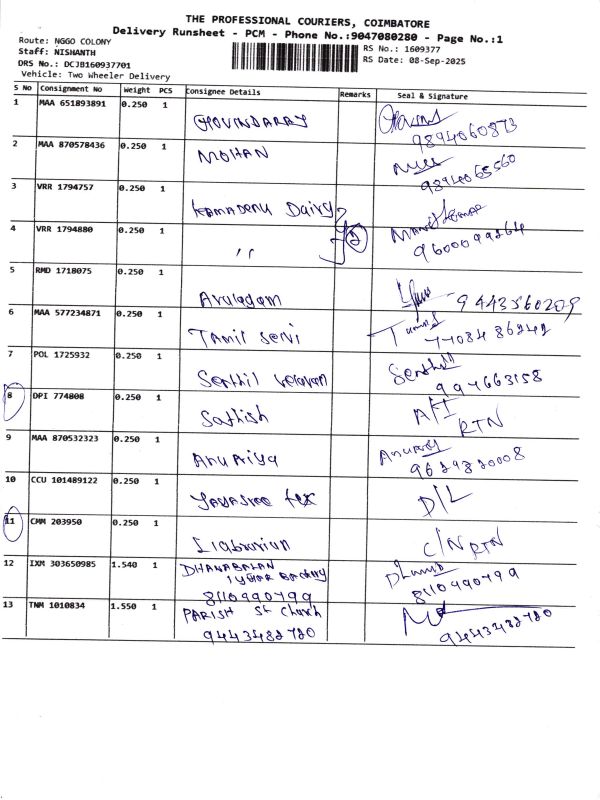 THE PROFESSIONAL COURIERS, COIMBATORE
Delivery Runsheet - PCM - Phone No.:9047080280 - Page No.:1
Route: NGGO COLONY
RS No.: 1609377
Staff: NISHANTH
RS Date: 08-Sep-2025
DRS No.: DCJB160937701
Vehicle: Two Wheeler Delivery
S No Consignment No Weight PCS Consignee Details Remarks Seal & Signature
1 MAA 651893891 0.250 1
GHOVINDARAJ
9894060873
2 MAA 870578436 0.250 1
MOHAN
9894065560
3 VRR 1794757 0.250 1
Kamadenu Dairy
4 VRR 1794880 0.250 1
,, 2
9600099264
5 RMD 1718075 0.250 1
Arulagam 9443560209
6 MAA 577234871 0.250 1
Tamil Selvi
7708486242
7 POL 1725932 0.250 1
Senthil Velavan Senthil
994663158
8 DPI 774808 0.250 1
Sathish RTN
9 MAA 870532323 0.250 1
Anupriya
9629820008
10 CCU 101489122 0.250 1
Jayasree Tex D/L
11 CMM 203950 0.250 1
C/N RTN
12 IXM 303650985 1.540 1
DHANABALAN
8110990799 8110990799
13 TNM 1010834 1.550 1
PARISH St Church
9443482780 9443482780